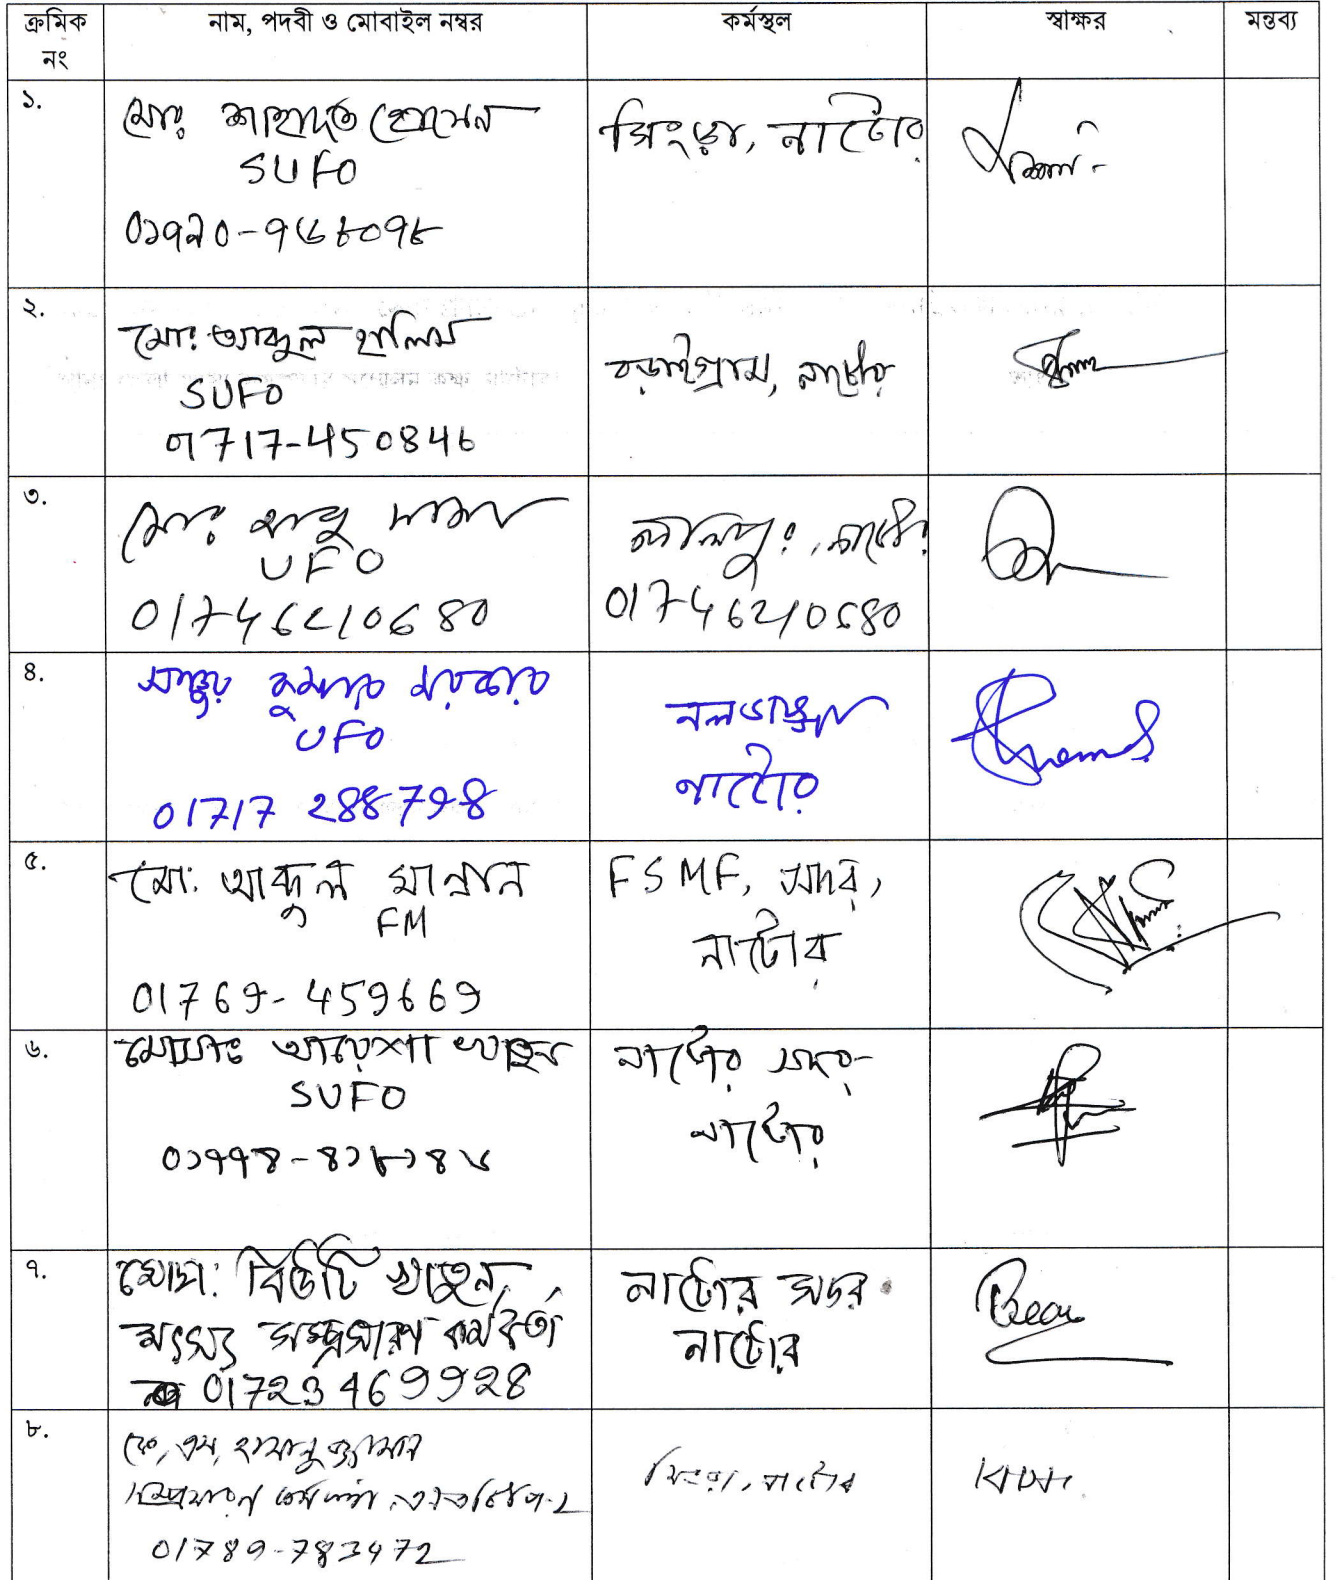 ক্রমিক নং
নাম, পদবী ও মোবাইল নম্বর
কর্মস্থল
স্বাক্ষর
মন্তব্য
১.
মোঃ শাহাদত হোসেন
SUFO
০১৭২০-৭৬৮০৭৮
সিংড়া, নাটোর
২.
মোঃ আব্দুল হালিম
SUFO
01717-450846
বড়াইগ্রাম, নাটোর
৩.
মোঃ
UFO
01746210680
লালপুর, নাটোর
01746210680
৪.
কুমার সরকার
UFO
01717 288798
নলডাঙ্গা
নাটোর
৫.
মো: আব্দুল মান্নান
FM
01769-459669
FSMF, সদর,
নাটোর
৬.
মোসাঃ আয়েশা খাতুন
SUFO
০১৭৭৪-৪১৮১৪৬
নাটোর সদর
নাটোর
৭.
মোছা: বিউটি খাতুন
মৎস্য সম্প্রসারণ কর্মকর্তা
01723469928
নাটোর সদর
নাটোর
৮.
কে, এম, হাসানুজ্জামান
সম্প্রসারণ কর্মকর্তা
01789-783472
সিংড়া, নাটোর